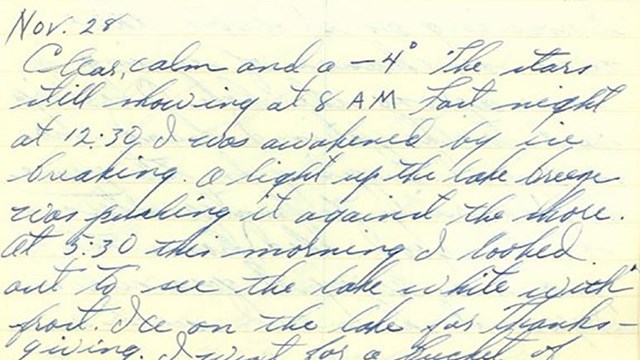 Nov. 28
Clear, calm and a -4° The stars
still showing at 8 AM Last night
at 12:30 I was awakened by ice
breaking. A light up the lake breeze
was pushing it against the shore.
At 5:30 this morning I looked
out to see the lake white with
frost. Ice on the lake for thanks-
giving. I went for a bucket of